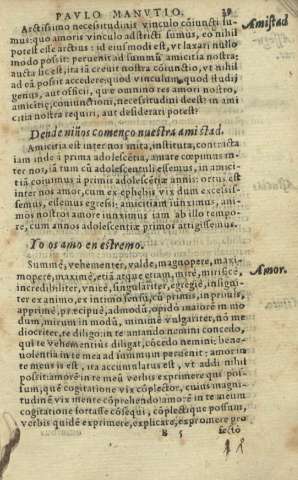 PAVLO MANVTIO. 39
Amistad
Arctissimo necessitudinis vinculo cõiuncti su-
mus: quo amoris vinculo adstricti sumus, eo nihil
potest esse arctius: id eiusmodi est, vt laxari nullo
modo possit: peruenit ad summũ amicitia nostra;
aucta sic est, ita iã creuit nostra cõiunctio, vt nihil
ad eã possit accedere: quod vinculum, quod studij
genus, aut officij, quæ omnino res amori nostro,
amicitię, coniunctioni, necessitudini deest? in ami
citia nostra requiri, aut desiderari potest?
Dende niños començo nuestra amistad.
Amicitia est inter nos inita, instituta, contracta
iam inde à prima adolescẽtia, amare cœpimus in-
ter nos, iã tum cũ adolescentuli essemus, in amici-
tiã coiuimus à primis adolescẽtiæ annis: ortus est
inter nos amor, cum ex ephebis vix dum excessis-
semus, essemus egressi: amicitiam iunximus, ani-
mos nostros amore iunximus iam ab illo tempo-
re, cum annos adolescentiæ primor attigissemus.
Yo os amo en estremo.
Amor.
Summè, vehementer, valde, magnopere, maxi-
mopere, maximè, etiã atque etiam, mirè, mirificè,
incredibiliter, vnicè, singulariter, egregiè, insigni-
ter ex animo, ex intimo sensu, cũ primis, in primis,
apprimè, præcipuè, admodũ, opidò maiorẽ in mo
dum, mirum in modũ, minimè vulgariter, nõ me-
diocriter, te diligo: in te amando nemini concedo,
qui te vehementiùs diligat, cõcedo nemini; bene-
uolentia in te mea ad summum peruenit: amor in
te meus is est, ita accumulatus est, vt addi nihil
possit: amorẽ in te meũ verbis exprimere qui pos-
sum, quẽ cogitatione vix cõplector, cuius magni-
tudinẽ vix mente cõprehendo? amorẽ in te meum
cogitatione fortasse cõsequi, cõplectique possum,
verbis quidẽ exprimere, explicare, expromere pro
B 5 fectò